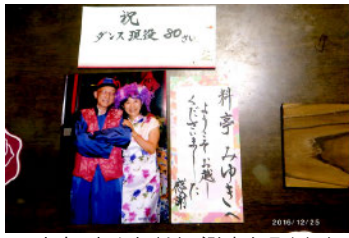 祝
ダンス現役80さい
料亭 みゆきへ
ようこそお越し
くださいました
感謝
2016/12/25